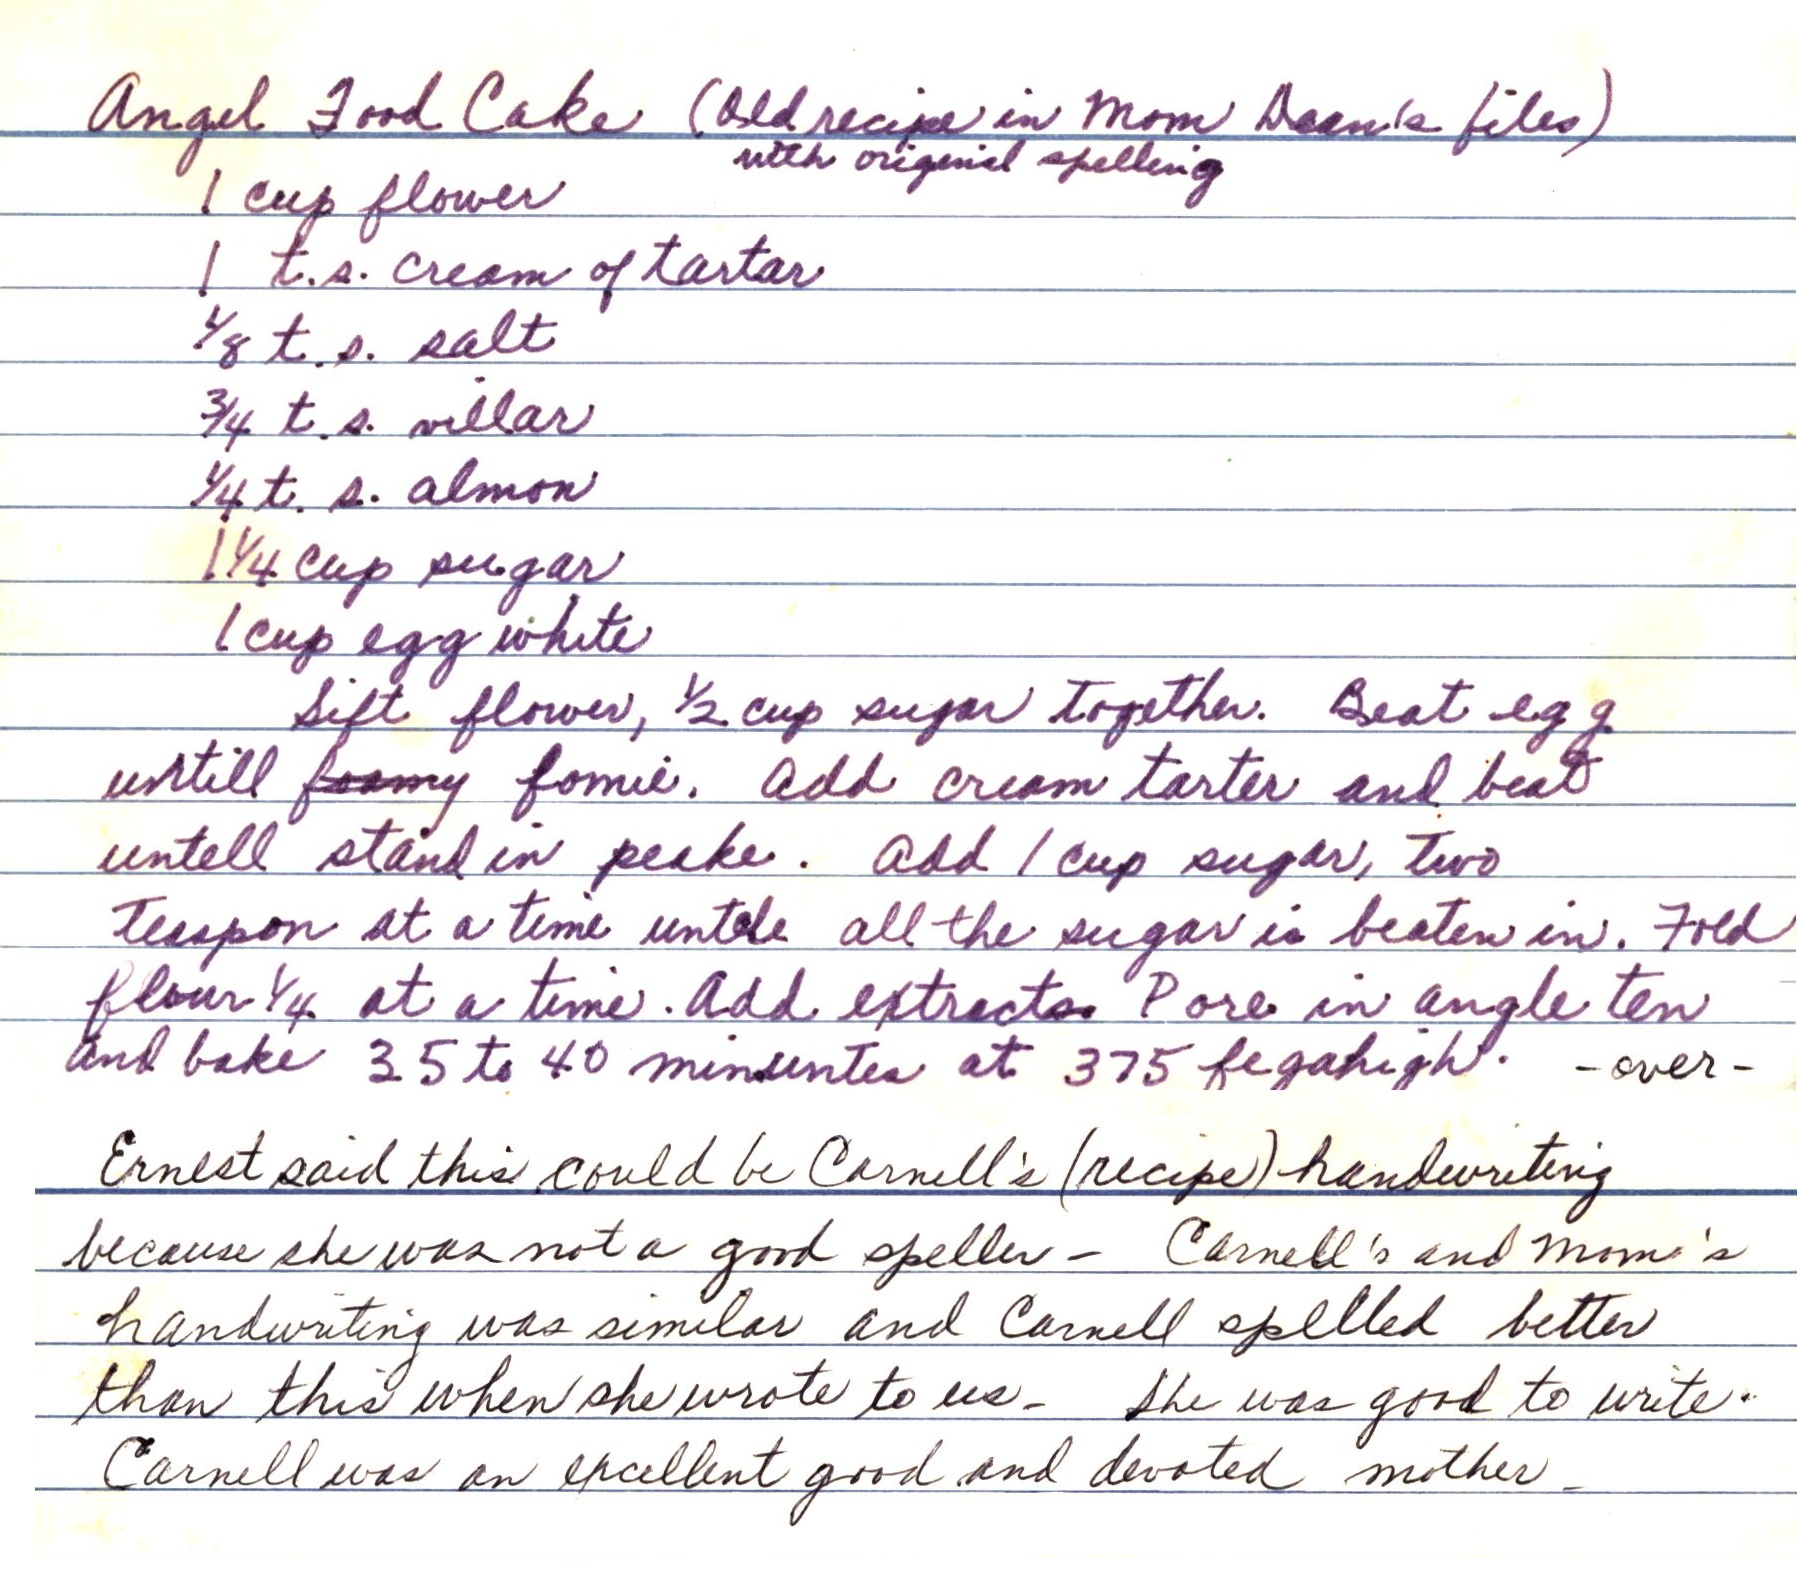 Angel Food Cake (Old recipe in Mom Dean's files)
with original spelling
1 cup flower
1 t.s. cream of tartar
1/8 t.s. salt
3/4 t.s. villar
1/4 t.s. almon
1 1/4 cup sugar
1 cup egg white
Sift flower, 1/2 cup sugar together. Beat egg
untill foamy fomie. Add cream tarter and beat
untell stand in peake. Add 1 cup sugar, two
teaspon at a time untele all the sugar is beaten in. Fold
flour 1/4 at a time. Add extracts. Pore in angle ten
and bake 35 to 40 minuntes at 375 fegahigh. -over-
Ernest said this could be Carnell's (recipe) handwriting
because she was not a good speller - Carnell's and Mom's
handwriting was similar and Carnell spelled better
than this when she wrote to us - She was good to write.
Carnell was an excellent good and devoted mother -